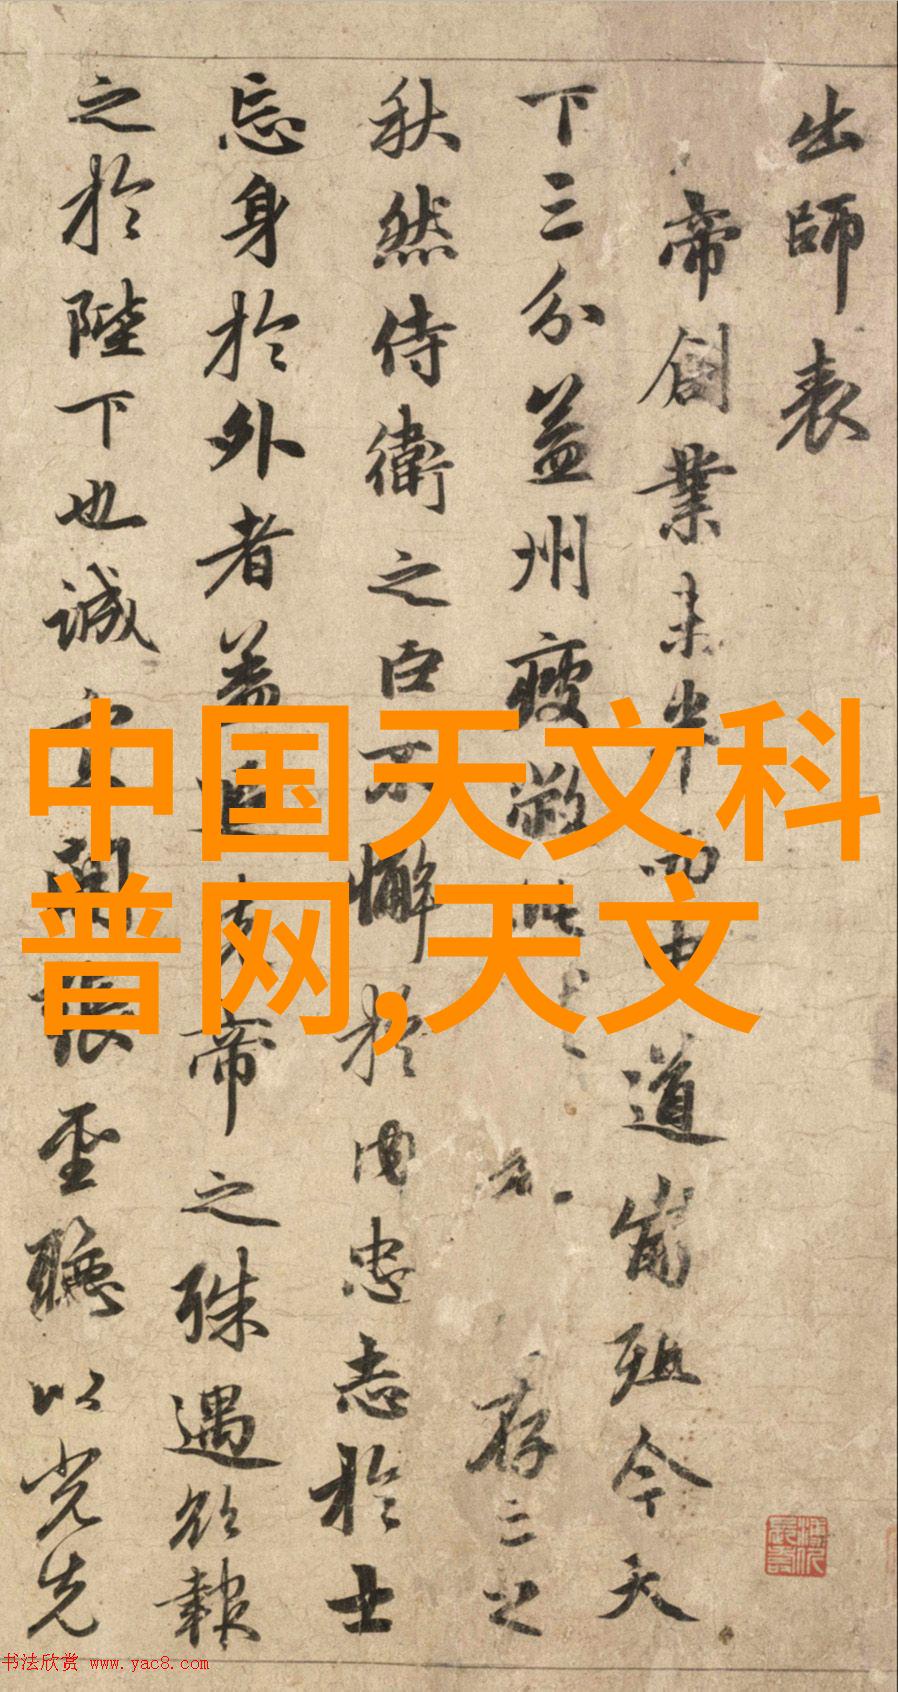 出師表
帝創業未半而中道崩殂今天
下三分益州疲敝此
存亡之
秋然侍衛之臣不懈於内忠志於士
忘身於外者盖追先帝之殊遇欲報
之於陛下也誠宜開張聖聽以光先
中国天文科
普网,天文
书法欣赏 www.yac8.com